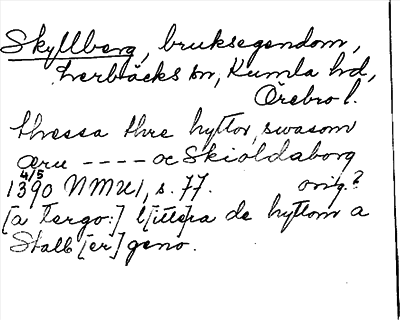 Skyllberg, bruksegendom,
Lerbäcks sn, Kumla hd,
Örebro l.
thessa thre hyttor, swasom
æru ---- oc Skioldaborg
4/5
1390 NMU1, s. 77. orig.?
[a tergo:] l[itte]ra de hyttom a
Stalb[er]geno.